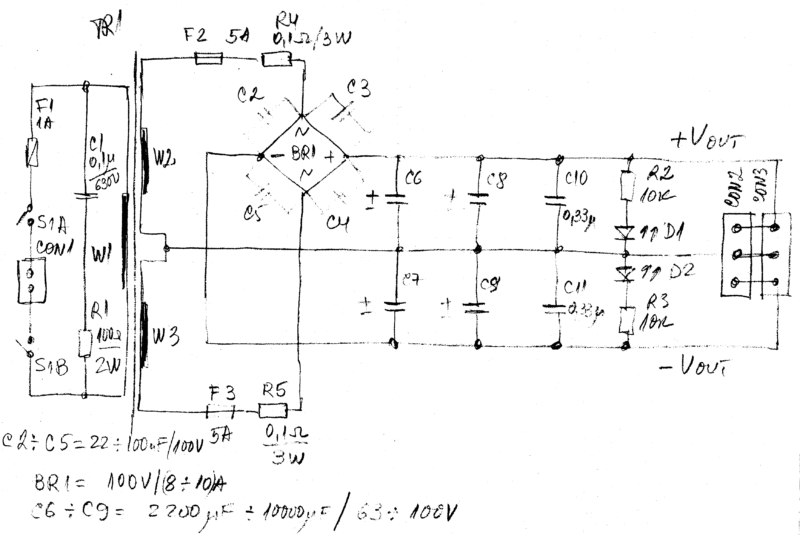 TR1
F2 5A
R4
0,1Ω/3W
F1
1A
C1
0,1µ
630V
C2
C3
W2
~
- BR1 +
~
C5
C4
+VOUT
C6
C8
C10
0,33µ
R2
10K
D1
CON2
CON3
S1A
CON1
W1
D2
C7
C9
C11
0.33µ
R3
10K
R1
100Ω
2W
W3
S1B
-VOUT
F3
5A
R5
0,1Ω
3W
±
±
±
±
C2÷C5=22÷100nF/100V
BR1= 100V/(8÷10)A
C6÷C9= 2200µF÷10000µF/63÷100V